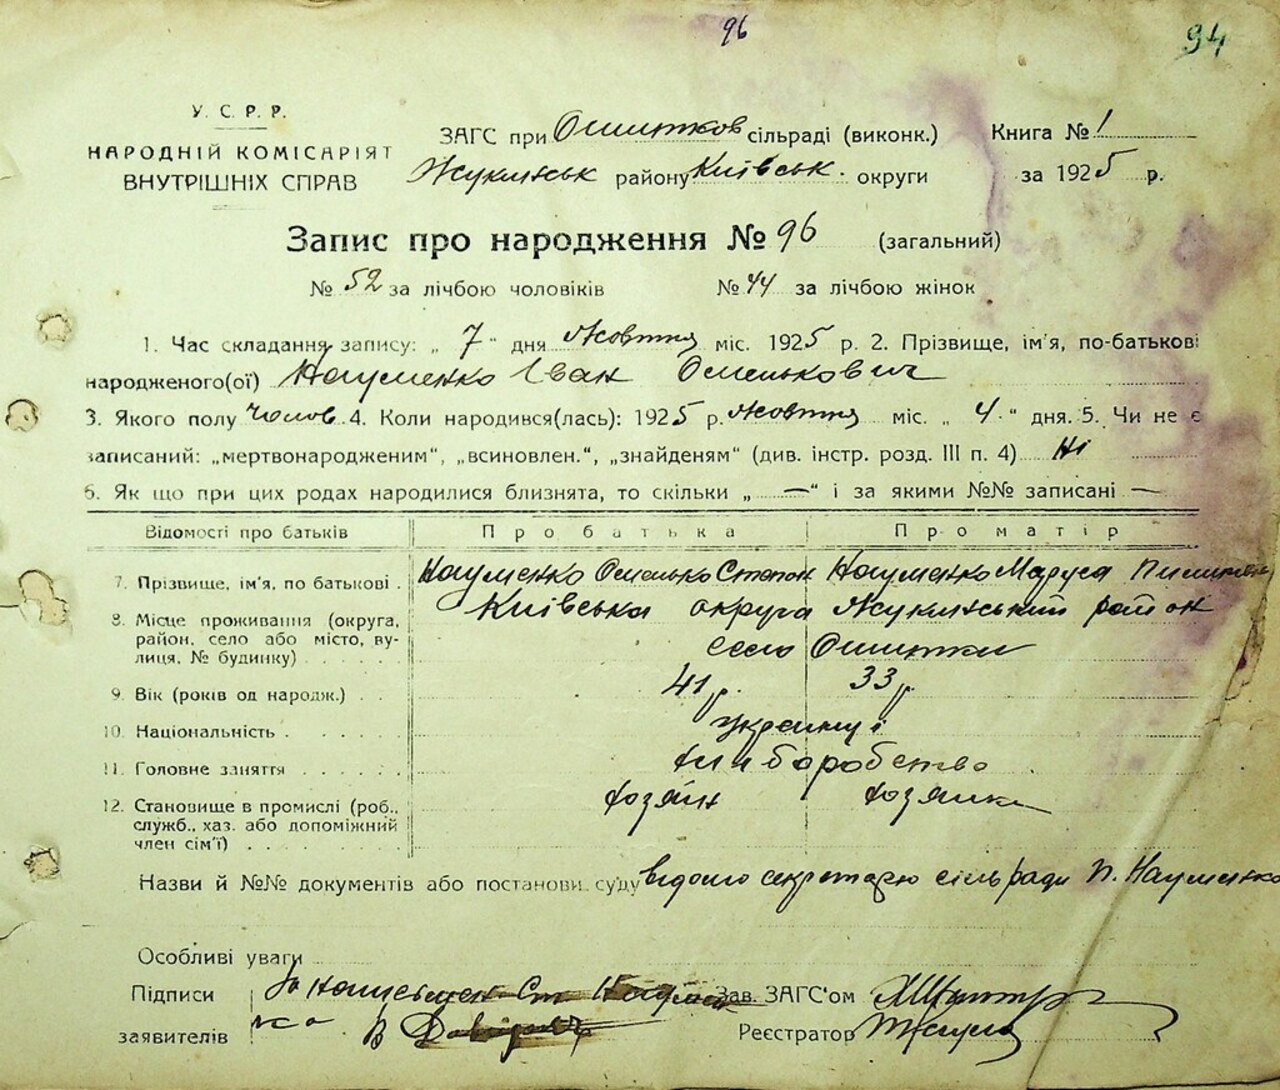 96
94
У. С. Р. Р.
НАРОДНІЙ КОМІСАРІЯТ
ВНУТРІШНІХ СПРАВ
ЗАГС при Ошитков сільраді (виконк.)
Жукинськ району Київськ. округи
Книга № 1
за 1925 р.
Запис про народження № 96 (загальний)
№ 52 за лічбою чоловіків № 44 за лічбою жінок
1. Час складання запису: „ 7 " дня Жовтня міс. 1925 р. 2. Прізвище, ім'я, по-батькові
народженого(ої) Науменко Іван Омелькович
3. Якого полу Чолов. 4. Коли народився(лась): 1925 р. Жовтня міс. „ 4 " дня. 5. Чи не є
записаний: „мертвонародженим", „всиновлен.", „знайденям" (див. інстр. розд. III п. 4) Ні
6. Як що при цих родах народилися близнята, то скільки „ — " і за якими №№ записані —
Відомості про батьків Про батька Про матір
7. Прізвище, ім'я, по батькові . Науменко Омелько Степан Науменко Маруся
8. Місце проживання (округа, Київська округа Жукинський район
район, село або місто, ву-
лиця, № будинку) . . . . . село Ошитки
9. Вік (років од народж.) . . 41 р. 33 р.
10. Національність . . . . . . українці
11. Головне заняття . . . . . . хліборобство
12. Становище в промислі (роб., хозяїн хозяйка
служб., хаз. або допоміжний
член сім'ї) . . . . . . . .
Назви й №№ документів або постанови суду відомо секретарю сільради П. Науменко
Особливі уваги
Підписи
заявителів
За Ст. Науменк
В
Зав. ЗАГС'ом
Реєстратор